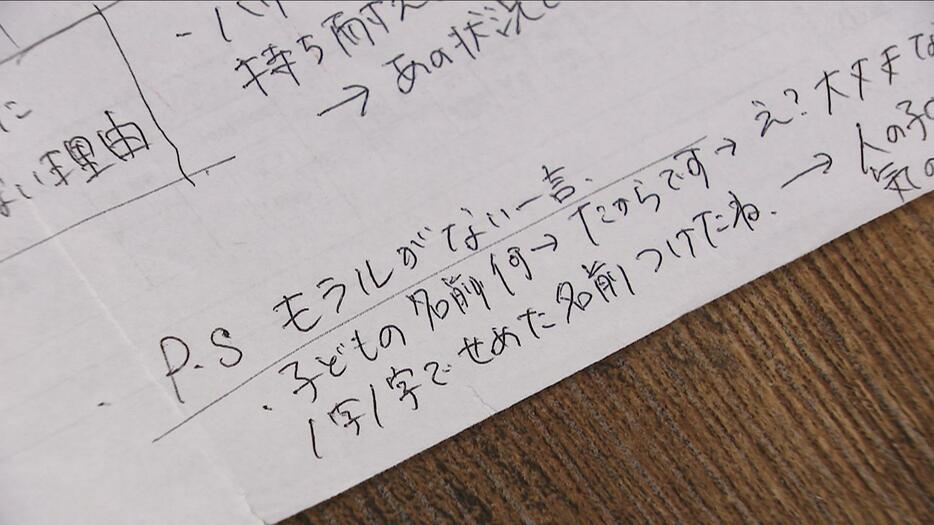 持ち耐え
→ あの状況
に
ない理由
P.S モラルがない一言.
・子どもの名前何→たからです→え?大丈夫な
1字1字でせめた名前つけたね. → 人の子の
気の